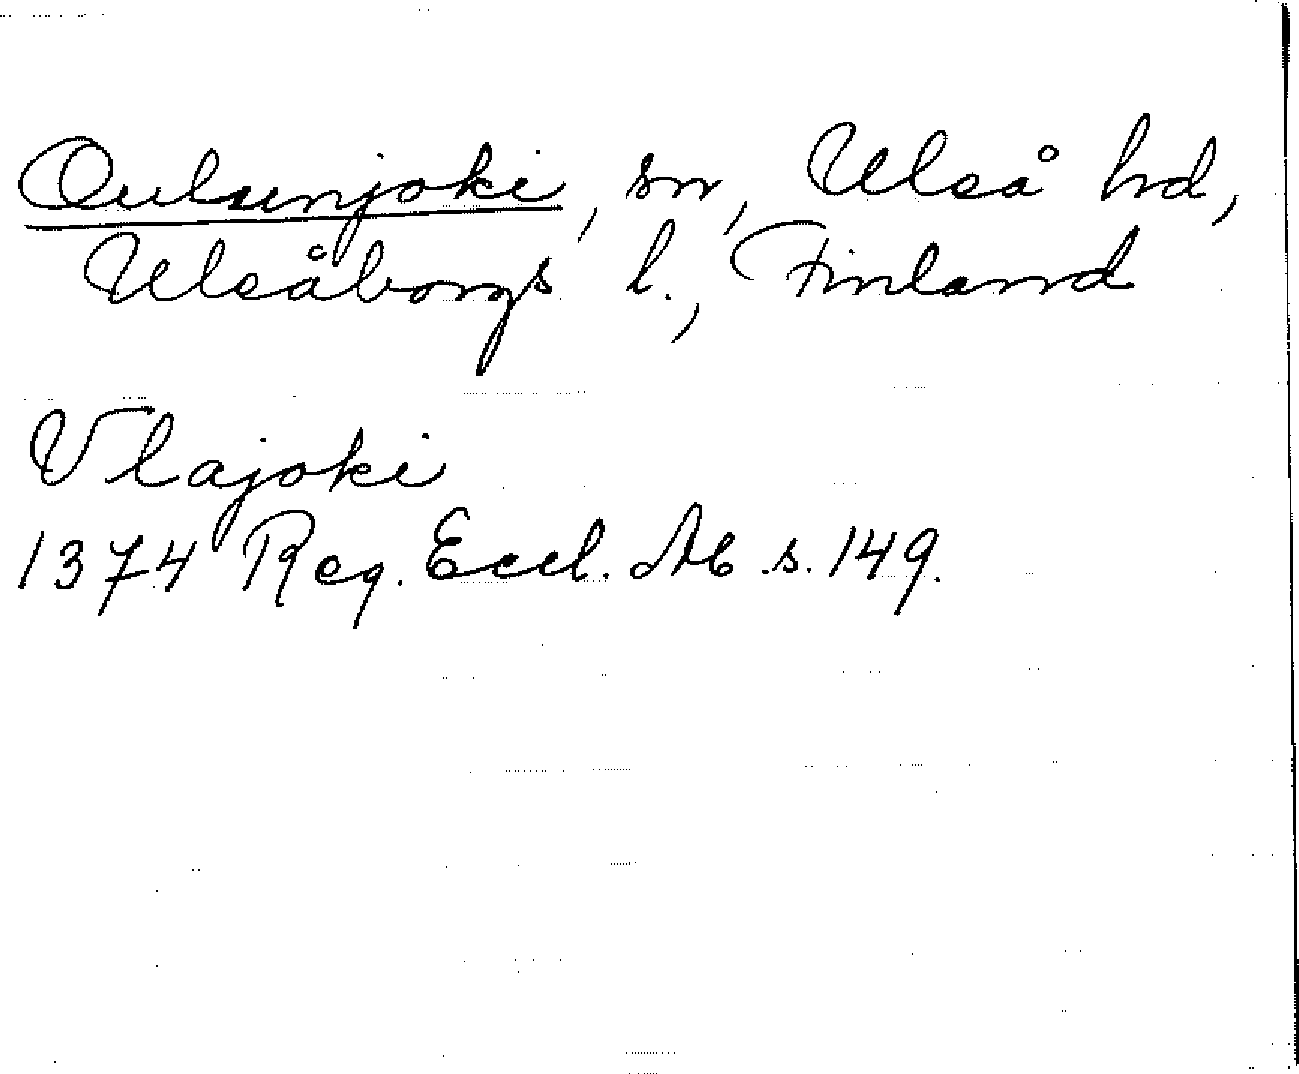 Oulunjoki, sn, Uleå hd,
Uleåborgs l., Finland
Vlajoki
1374 Reg. Eccl. Ab s. 149.